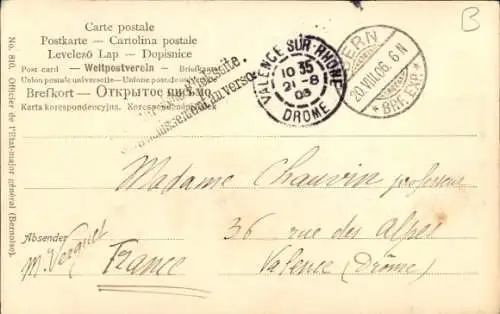 Carte postale
Postkarte – Cartolina postale
Levelező Lap – Dopisnice
Post card – Weltpostverein – Briefkaart
Union postale universelle – Unione postale
Brefkort – Открытое письмо
Karta korespondencyjna. Korespondenční
No. 810. Officier de l'Etat-major général (Bernoise).
VALENCE-SUR-RHONE
10 35
21-8
03
DROME
BERN
20.VIII.06. 6 N
* BRF. EXP. *
B
Madame Chauvin professeur
Absender
36 rue des Alpes
M. Verguet
France
Valence (Drôme)